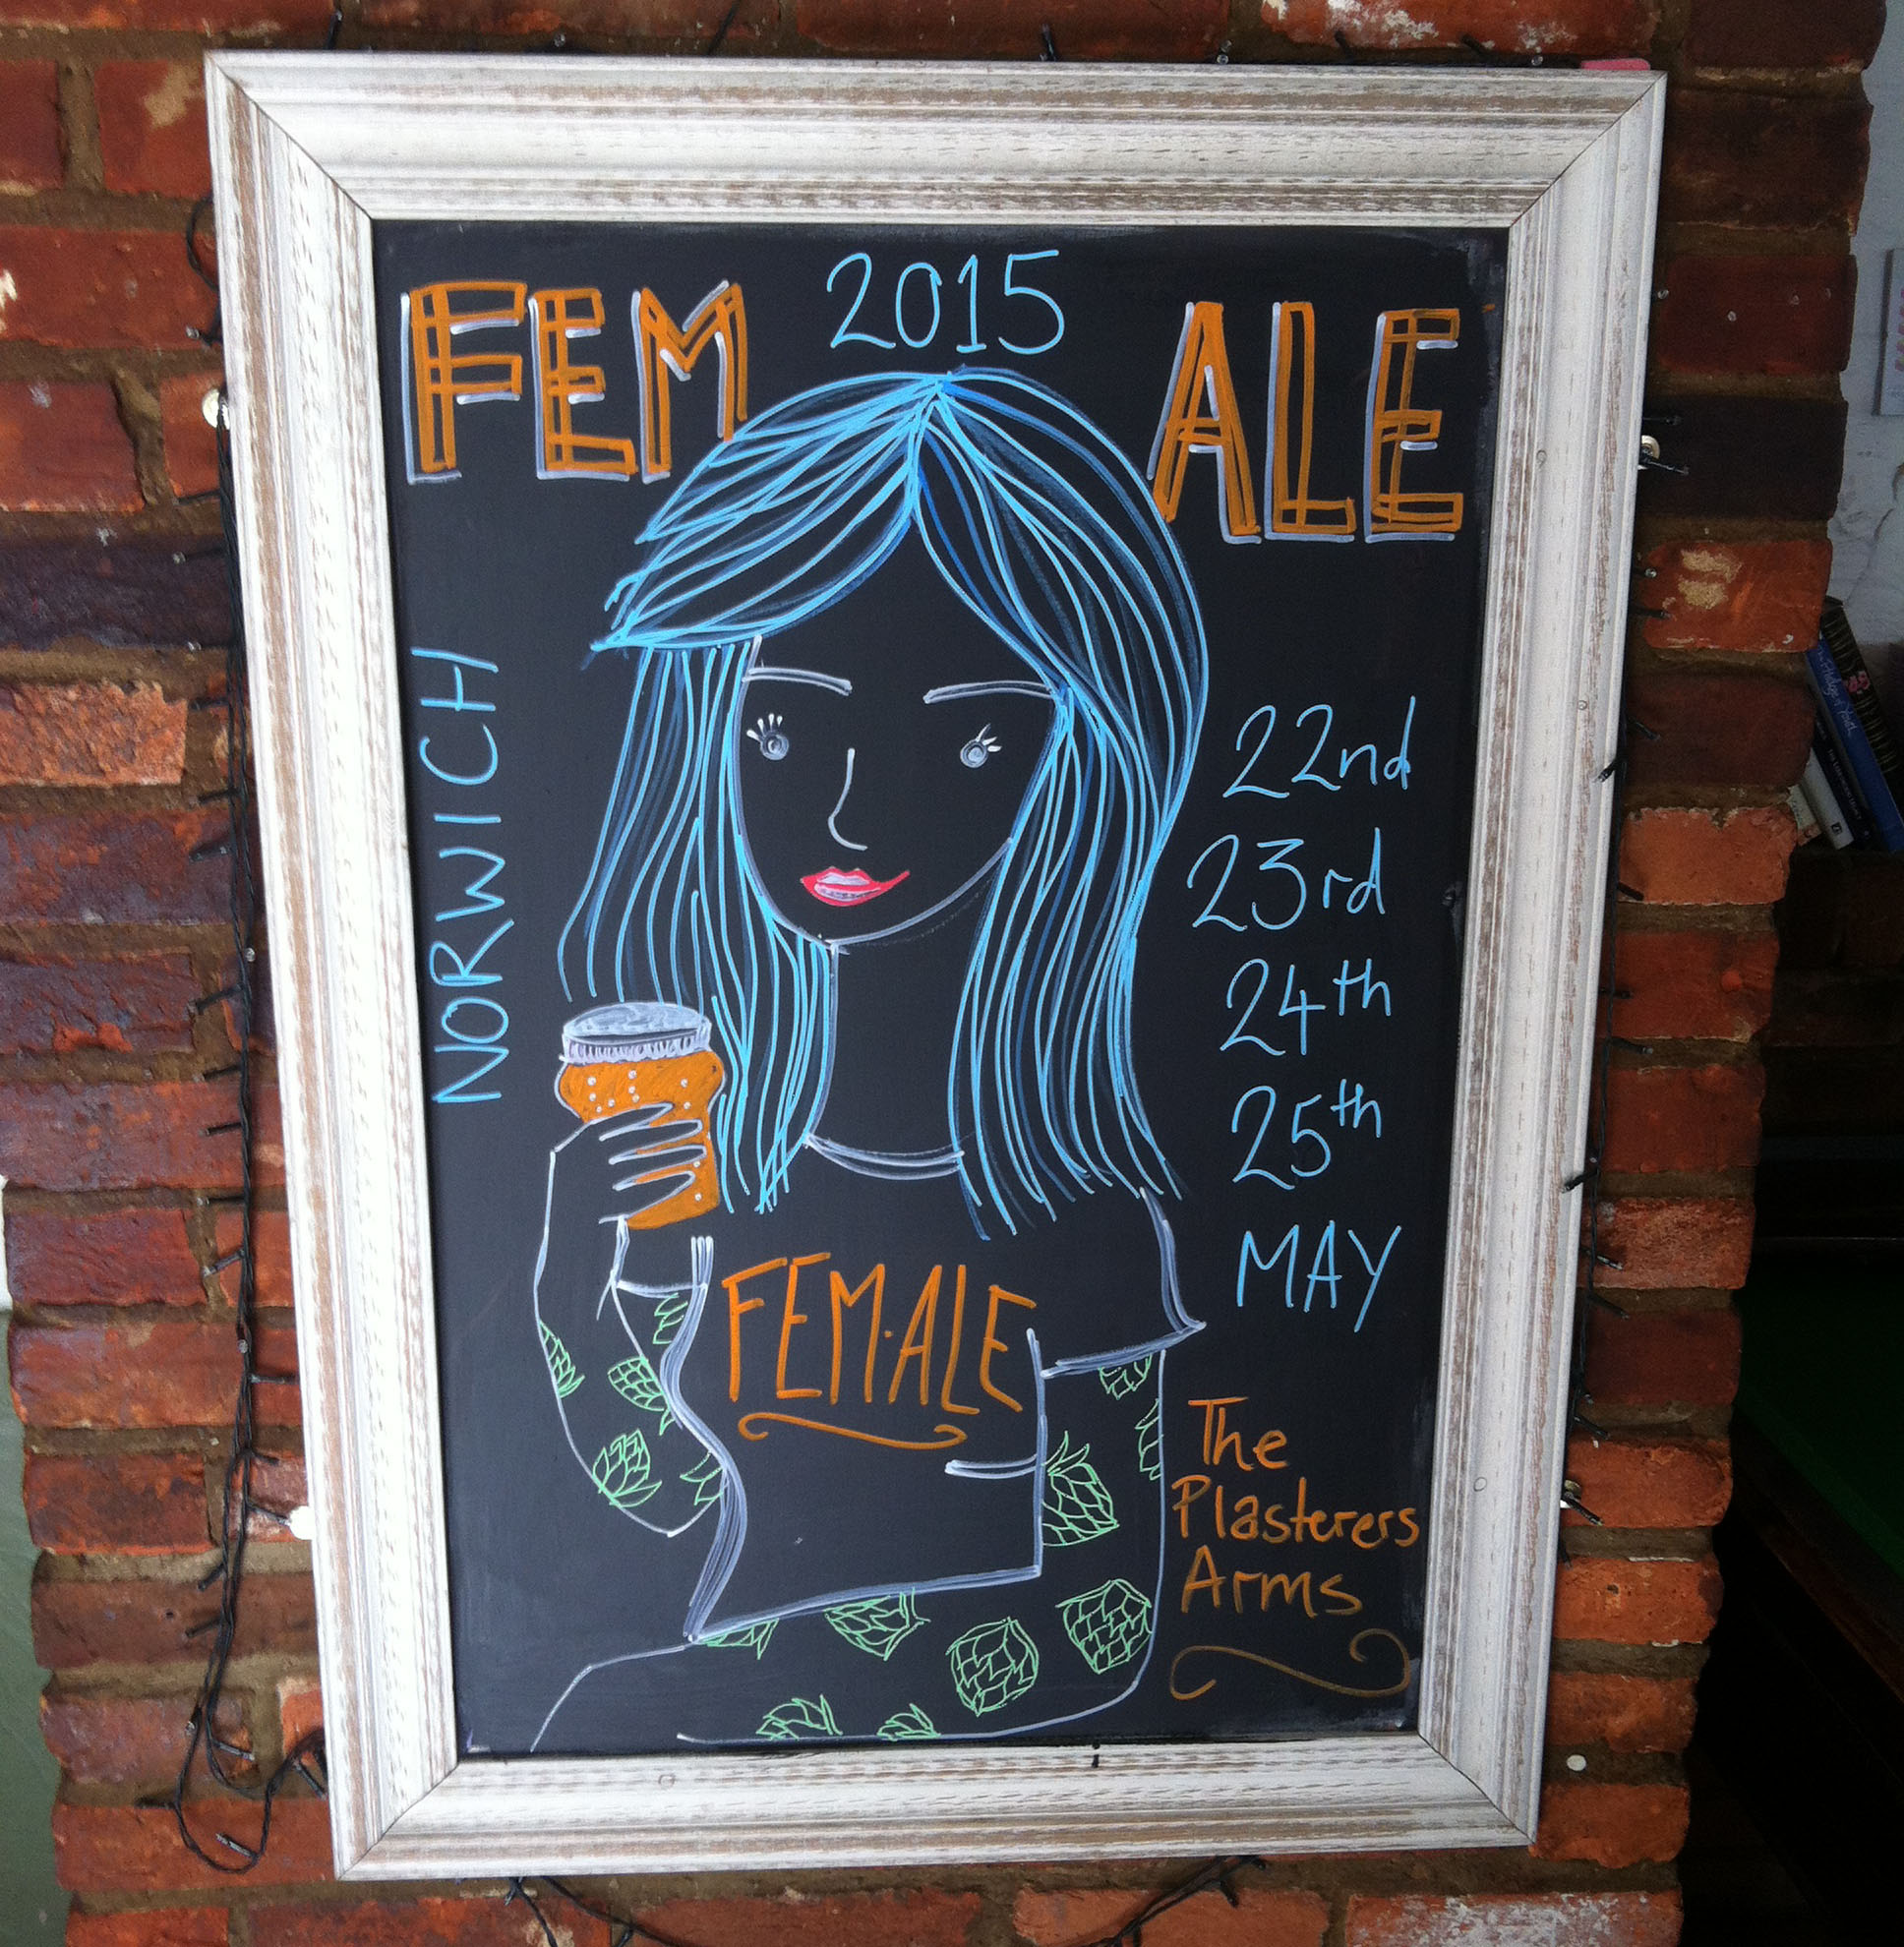 2015
FEM ALE
NORWICH
22nd
23rd
24th
25th
MAY
FEM.ALE
The
Plasterers
Arms